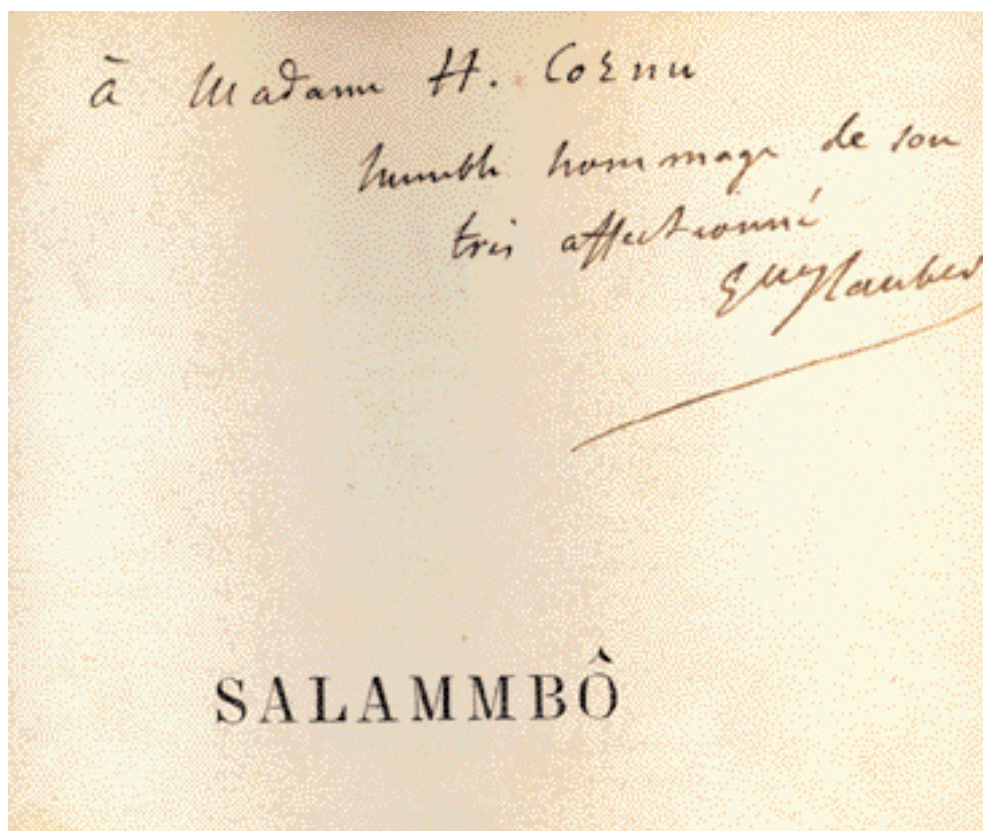 à Madame H. Cornu
humble hommage de son
très affectionné
Gve Flaubert
SALAMMBÔ